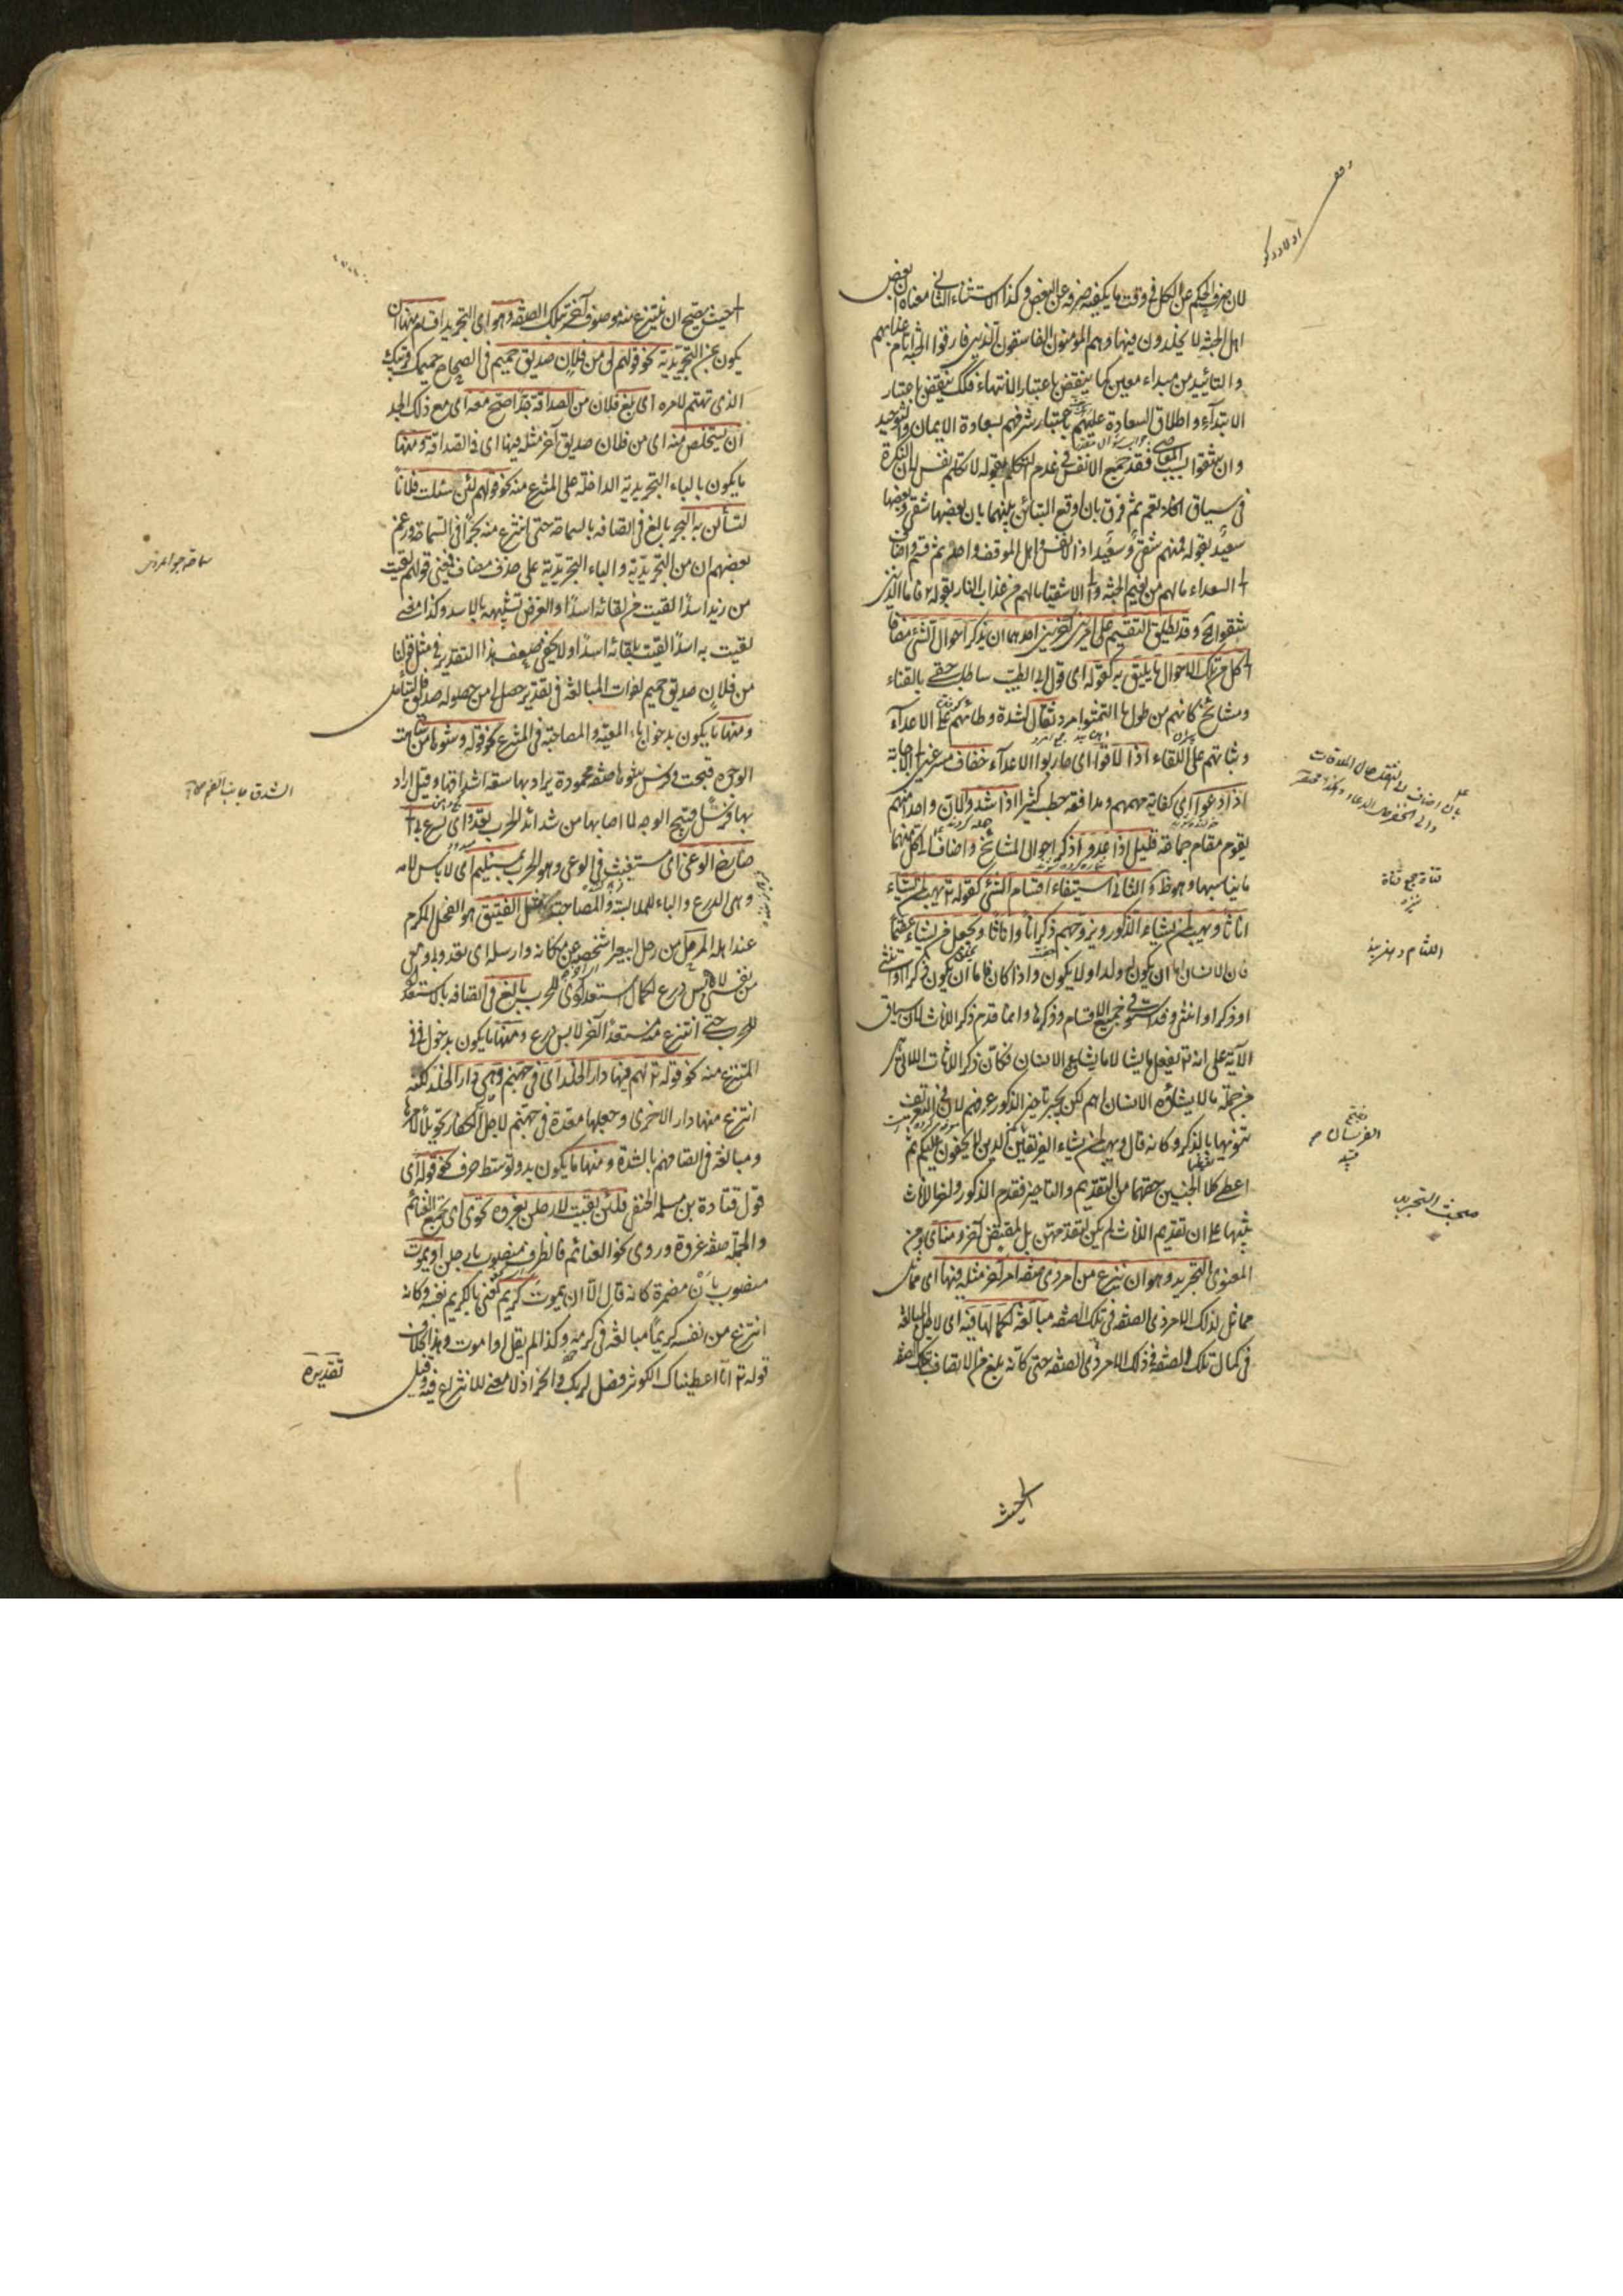 لان صرف الحكم عن الكل فى وقت ما يكفيه صرفه عن البعض وكذا الاستثناء الثانى معناه ان بعض
اهل الجنة لا يخلدون فيها وهم المؤمنون الفاسقون الذين فارقوا الجنة ايام عذابهم
والتأبيد من مبداء معين كما ينتقض باعتبار الانتهاء فكذلك ينتقض باعتبار
الابتداء واطلاق السعادة عليهم باعتبار تشرفهم بسعادة الايمان والتوحيد
وان شقوا بسبب المعاصى فقد جمع الانفس فى عدم التكلم بقوله لا تكلم نفس لان النكرة
فى سياق النفى تعم ثم فرق بان اوقع التباين بينهما بان بعضها شقى وبعضها
سعيد بقوله فمنهم شقى وسعيد اذ الانفس واهل الموقف واحد ثم قسم واضاف
الى السعداء ما لهم من نعيم الجنة والى الاشقياء ما لهم من عذاب النار بقوله تعالى فاما الذين
شقوا الآية وقد يطلق التقسيم على امرين آخرين احدهما ان يذكر احوال الشئ مضافا
الى كل من تلك الاحوال ما يليق به كقوله اى قول ابى الطيب ساطلب حقى بالقناء
ومشائخ كانهم من طول ما التثموا مرد ثقال لشدة وطائهم على الاعداء
وثباتهم على اللقاء اذا لاقوا اى حاربوا الاعداء خفاف مسرعين الى الاجابة
اذا دعوا اى كفاية مهم ومدافعة خطب كثير اذا شدوا لان واحدا منهم
يقوم مقام جماعة قليل اذا عدوا ذكر احوال المشائخ واضاف الى كل منها
ما يناسبها وهو ظ والثانى استيفاء اقسام الشئ كقوله تعالى يهب لمن يشاء
اناثا ويهب لمن يشاء الذكور او يزوجهم ذكرانا واناثا ويجعل من يشاء عقيما
فان الانسان اما ان يكون له ولد او لا يكون واذا كان فاما ان يكون ذكرا او انثى
او ذكرا وانثى وقد استوفى جميع الاقسام وذكرها وانما قدم ذكر الاناث لان سياق
الآية على انه تعالى يفعل ما يشاء لا ما يشاء الانسان فكان ذكر الاناث اللاتى
من جملة ما لا يشاؤه الانسان اهم لكن لجبر تاخير الذكور عرفهم لان فى التعريف
تنويها بالذكر وكانه قال ويهب لمن يشاء الفرسان الذين لا يخفون عليكم ثم
اعطى كلا الجنسين حقهما من التقديم والتاخير فقدم الذكور واخر الاناث
تنبيها على ان تقديم الاناث لم يكن لتقدمهن بل لمقتض آخر ومنه اى ومن
المعنوى التجريد وهو ان ينتزع من امر ذى صفة امر آخر مثله فيها اى مماثل
لذلك الامر ذى الصفة فى تلك الصفة مبالغة لكمالها فيه اى لاجل المبالغة
فى كمال تلك الصفة فى ذلك الامر ذى الصفة حتى كانه بلغ من الاتصاف بتلك الصفة
الى حيث
قناة جمع قناة
اللثام دهن بند
مبحث التجريد
الى حيث يصح ان ينتزع منه موصوف آخر بتلك الصفة وهو اى التجريد اقسام منها ان
يكون بمن التجريدية نحو قولهم لى من فلان صديق حميم فى الصحاح حميمك قريبك
الذى تهتم لامره اى بلغ فلان من الصداقة حدا صح معه اى مع ذلك الحد
ان يستخلص منه اى من فلان صديق آخر مثله فيها اى فى الصداقة ومنها
ما يكون بالباء التجريدية الداخلة على المنتزع منه نحو قولهم لئن سئلت فلانا
لتسألن به البحر بالغ فى اتصافه بالسماحة حتى انتزع منه بحرا فى السماحة وزعم
بعضهم ان من التجريدية والباء التجريدية على حذف مضاف فمعنى قولهم لقيت
من زيد اسدا لقيت من لقائه اسدا والغرض تشبيهه بالاسد وكذا معنى
لقيت به اسدا لقيت بلقائه اسدا ولا يخفى ضعف هذا التقدير فى مثل قولنا
من فلان صديق حميم لفوات المبالغة فى تقدير حصل لى من حصوله صديق فليتأمل
ومنها ما يكون بدخول باء المعية والمصاحبة فى المنتزع نحو قوله وشوهاء من شاهت
الوجوه قبحت وفرس شوهاء صفة محمودة يراد بها سعة اشداقها وقيل اراد
بها فرسا قبيح الوجه لما اصابها من شدائد الحرب تعدو اى تسرع بى الى
صارخ الوغى اى مستغيث فى الوغى وهو الحرب بمستلئم اى لابس لامة
وهى الدرع والباء للملابسة والمصاحبة مثل الفنيق هو الفحل المكرم
عند اهله المرحل من رحل البعير اشخصه عن مكانه وارسله اى تعدو بى ومعى
من نفسى لابس درع لكمال استعدادى للحرب بالغ فى اتصافه بالاستعداد
للحرب حتى انتزع منه مستعدا آخر لابس درع ومنها ما يكون بدخول فى فى
المنتزع منه نحو قوله تعالى لهم فيها دار الخلد اى فى جهنم وهى دار الخلد لكنه
انتزع منها دارا اخرى وجعلها معدة فى جهنم لاجل الكفار تهويلا لامرها
ومبالغة فى اتصافهم بالشدة ومنها ما يكون بدون توسط حرف نحو قوله اى
قول قتادة بن مسلمة الحنفى فلئن بقيت لارحلن بغزوة تحوى اى تجمع الغنائم
والجملة صفة غزوة وروى نحو الغنائم فالظرف منصوب بارحلن او يموت
منصوب بان مضمرة كانه قال الا ان يموت كريم يعنى بالكريم نفسه وكانه
انتزع من نفسه كريما مبالغة فى كرمه وكذا لم يقل او اموت وهذا بخلاف
قوله تعالى انا اعطيناك الكوثر فصل لربك وانحر اذ لا معنى للانتزاع فيه وقيل
تقديره